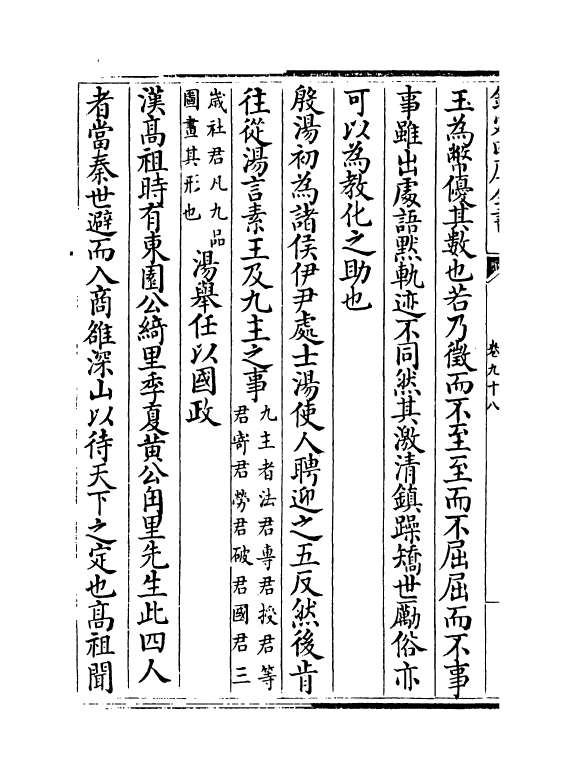 欽定四庫全書
卷九十八
玉為幣優其數也若乃徵而不至至而不屈屈而不事
事雖出處語黙軌迹不同然其激清鎮躁矯世勵俗亦
可以為教化之助也
殷湯初為諸侯伊尹處士湯使人聘迎之五反然後肯
往從湯言素王及九主之事九主者法君專君授君等
君寄君勞君破君國君三
歳社君凡九品
圖畫其形也湯舉任以國政
漢髙祖時有東園公綺里季夏黄公甪里先生此四人
者當秦世避而入商雒深山以待天下之定也髙祖聞